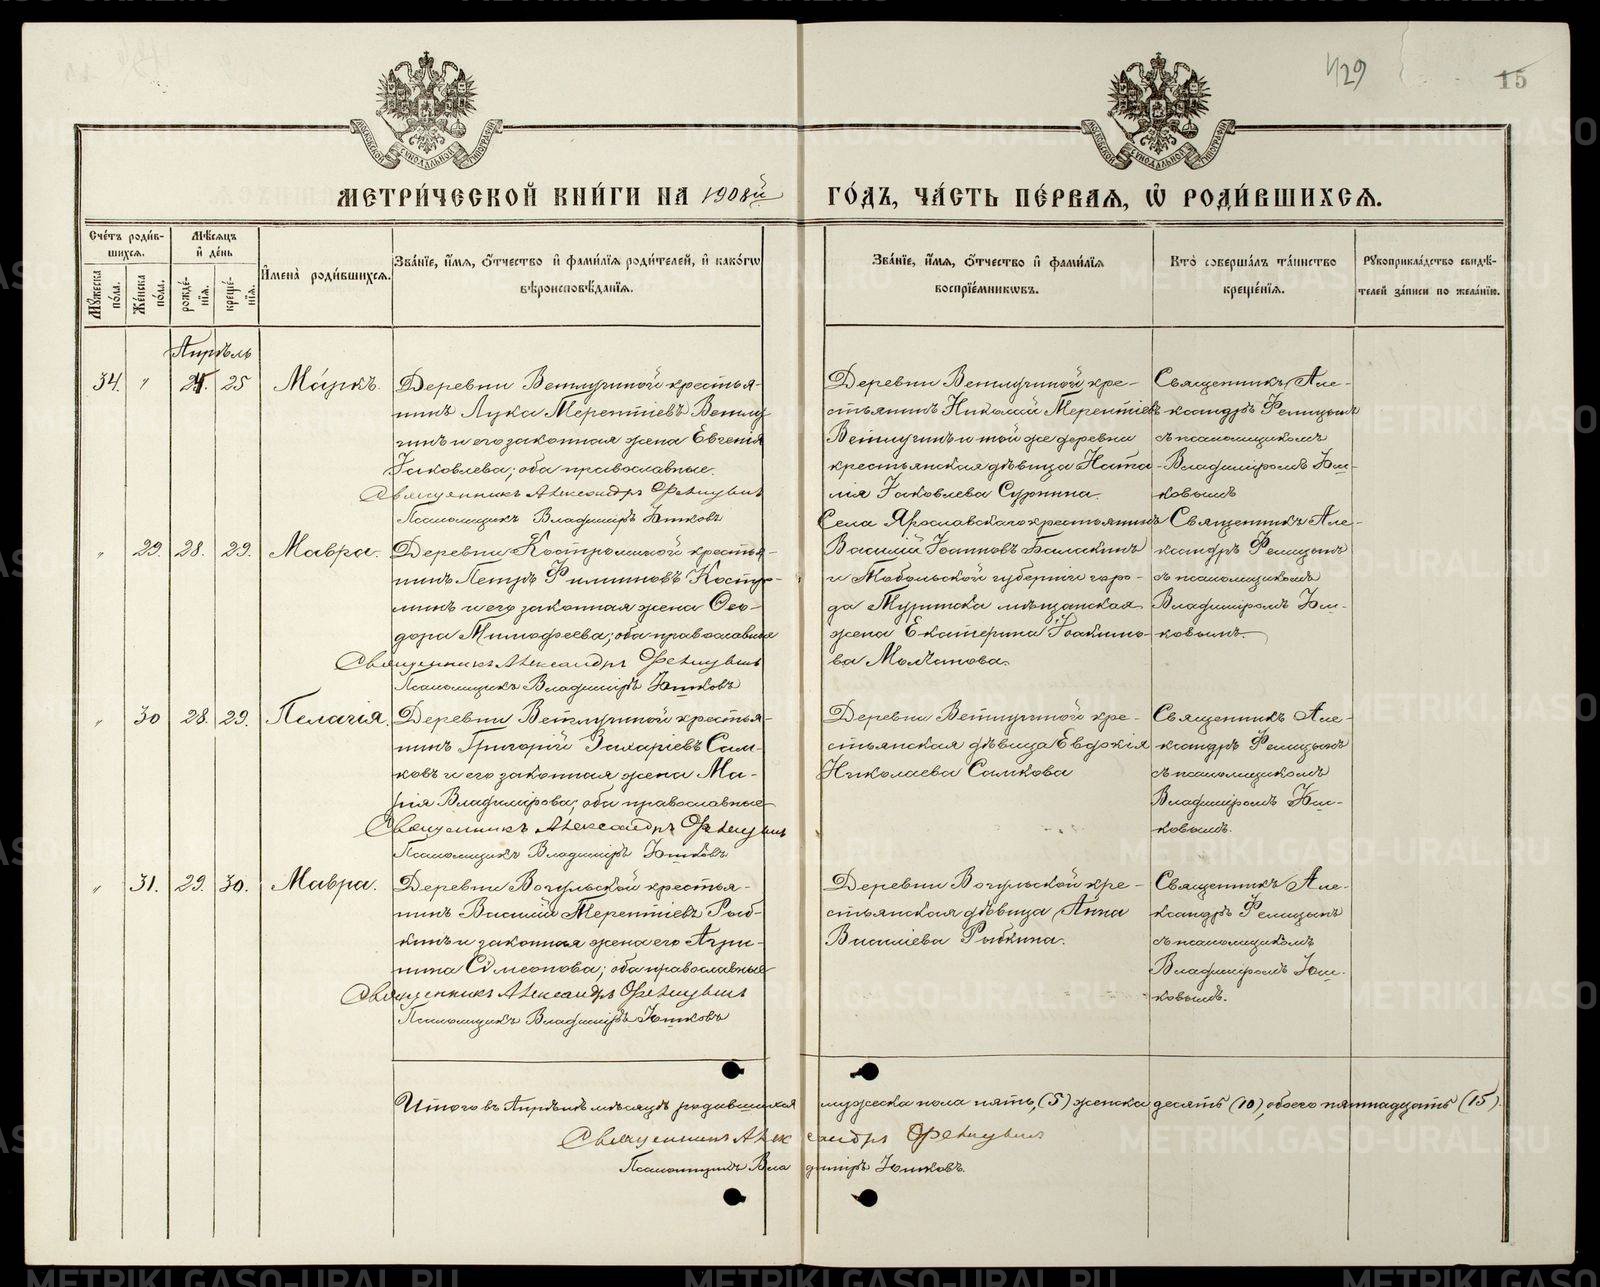 429
15
МЕТРИ́ЧЕСКОЙ КНИ́ГИ НА 1908й ГО́ДЪ, ЧА́СТЬ ПЕ́РВАѦ, Ѽ РОДИ́ВШИХСѦ.
Сче́тъ роди́вшихсѧ.
Мꙋ́жеска по́ла.
Же́нска по́ла.
Мѣ́сѧцъ и҆ де́нь
рожде́нїѧ.
креще́нїѧ.
И҆мена̀ роди́вшихсѧ.
Зва́нїе, и҆́мѧ, ѻ҆́тчество и҆ фами́лїѧ роди́телей, и҆ како́гѡ
вѣроисповѣ́данїѧ.
Зва́нїе, и҆́мѧ, ѻ҆́тчество и҆ фами́лїѧ
воспрїе́мникѡвъ.
Кто̀ соверша́лъ та́инство
креще́нїѧ.
Рꙋкоприкла́дство свидѣ́-
телей за́писи по жела́нїю.
Апрѣль
34. " 24. 25 Маркъ.
Деревни Ветлугиной крестья-
нинъ Лука Терентіевъ Ветлу
гинъ и его законная жена Евгенія
Іаковлева; оба православные.
Священникъ Александръ Фелицынъ
Псаломщикъ Владиміръ Юшковъ
Деревни Ветлугиной кре-
стьянинъ Николай Терентіевъ
Ветлугинъ и той же деревни
крестьянская дѣвица Ната-
лія Іаковлева Сурнина.
Священникъ Але-
ксандръ Фелицынъ
съ псаломщикомъ
Владиміромъ Юш-
ковымъ
" 29. 28. 29. Мавра.
Деревни Костроминой крестья-
нинъ Петръ Филипповъ Костро-
минъ и его законная жена Ѳео-
дора Тимофеева; оба православные
Священникъ Александръ Фелицынъ
Псаломщикъ Владиміръ Юшковъ
Села Ярославскаго крестьянинъ
Василій Іоанновъ Балакинъ
и Тобольской губерніи горо-
да Туринска мѣщанская
жена Екатерина Іоакимо-
ва Молчанова.
Священникъ Але-
ксандръ Фелицынъ
съ псаломщикомъ
Владиміромъ Юш-
ковымъ.
" 30 28. 29. Пелагія.
Деревни Ветлугиной крестья-
нинъ Григорій Захаріевъ Сам-
ковъ и его законная жена Ма-
рія Владимірова; оба православные
Священникъ Александръ Фелицынъ
Псаломщикъ Владиміръ Юшковъ
Деревни Ветлугиной кре-
стьянская дѣвица Евдокія
Николаева Самкова
Священникъ Але-
ксандръ Фелицынъ
съ псаломщикомъ
Владиміромъ Юш-
ковымъ.
" 31. 29. 30. Мавра.
Деревни Вогульской крестья-
нинъ Василій Терентіевъ Рыб-
кинъ и законная жена его Агри-
пина Сѵмеонова; оба православные
Священникъ Александръ Фелицынъ
Псаломщикъ Владиміръ Юшковъ
Деревни Вогульской кре-
стьянская дѣвица Анна
Василіева Рыбкина.
Священникъ Але-
ксандръ Фелицынъ
съ псаломщикомъ
Владиміромъ Юш-
ковымъ.
Итого въ Апрѣлѣ мѣсяцѣ родившихся мужеска пола пять, (5) женска десять (10), обоего пятнадцать (15).
Священникъ Александръ Фелицынъ
Псаломщикъ Владиміръ Юшковъ.
METRIKI.GASO-URAL.RU